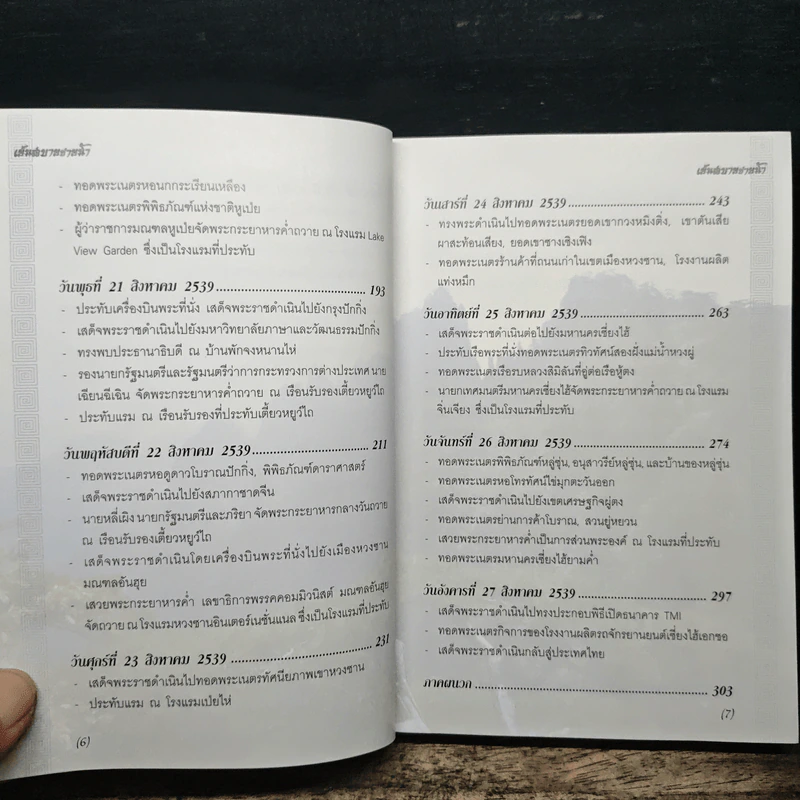 เย็นสบายชายน้ำ
- ทอดพระเนตรหอนกกระเรียนเหลือง
- ทอดพระเนตรพิพิธภัณฑ์แห่งชาติหูเป่ย
- ผู้ว่าราชการมณฑลหูเป่ยจัดพระกระยาหารค่ำถวาย ณ โรงแรม Lake
View Garden ซึ่งเป็นโรงแรมที่ประทับ
วันพุธที่ 21 สิงหาคม 2539 193
- ประทับเครื่องบินพระที่นั่ง เสด็จพระราชดำเนินไปยังกรุงปักกิ่ง
- เสด็จพระราชดำเนินไปยังมหาวิทยาลัยภาษาและวัฒนธรรมปักกิ่ง
- ทรงพบประธานาธิบดี ณ บ้านพักจงหนานไห่
- รองนายกรัฐมนตรีและรัฐมนตรีว่าการกระทรวงการต่างประเทศ นาย
เฉียนฉีเฉิน จัดพระกระยาหารค่ำถวาย ณ เรือนรับรองเตี้ยวหยูว์ไถ
- ประทับแรม ณ เรือนรับรองที่ประทับเตี้ยวหยูว์ไถ
วันพฤหัสบดีที่ 22 สิงหาคม 2539 211
- ทอดพระเนตรหอดูดาวโบราณปักกิ่ง, พิพิธภัณฑ์ดาราศาสตร์
- เสด็จพระราชดำเนินไปยังสภากาชาดจีน
- นายหลี่เผิง นายกรัฐมนตรีและภริยา จัดพระกระยาหารกลางวันถวาย
ณ เรือนรับรองเตี้ยวหยูว์ไถ
- เสด็จพระราชดำเนินโดยเครื่องบินพระที่นั่งไปยังเมืองหวงซาน
มณฑลอันฮุย
- เสวยพระกระยาหารค่ำ เลขาธิการพรรคคอมมิวนิสต์ มณฑลอันฮุย
จัดถวาย ณ โรงแรมหวงซานอินเตอร์เนชั่นแนล ซึ่งเป็นโรงแรมที่ประทับ
วันศุกร์ที่ 23 สิงหาคม 2539 231
- เสด็จพระราชดำเนินไปทอดพระเนตรทัศนียภาพเขาหวงซาน
- ประทับแรม ณ โรงแรมเป่ยไห่
(6)
เย็นสบายชายน้ำ
วันเสาร์ที่ 24 สิงหาคม 2539 243
- ทรงพระดำเนินไปทอดพระเนตรยอดเขากวงหมิงติ่ง, เขาตันเสีย
ผาสะท้อนเสียง, ยอดเขาซางเชิงเฟิง
- ทอดพระเนตรร้านค้าที่ถนนเก่าในเขตเมืองหวงซาน, โรงงานผลิต
แท่งหมึก
วันอาทิตย์ที่ 25 สิงหาคม 2539 263
- เสด็จพระราชดำเนินต่อไปยังมหานครเซี่ยงไฮ้
- ประทับเรือพระที่นั่งทอดพระเนตรทิวทัศน์สองฝั่งแม่น้ำหวงผู่
- ทอดพระเนตรเรือรบหลวงสิมิลันที่อู่ต่อเรือหู้ตง
- นายกเทศมนตรีมหานครเซี่ยงไฮ้จัดพระกระยาหารค่ำถวาย ณ โรงแรม
จินเจียง ซึ่งเป็นโรงแรมที่ประทับ
วันจันทร์ที่ 26 สิงหาคม 2539 274
- ทอดพระเนตรพิพิธภัณฑ์หลู่ซุ่น, อนุสาวรีย์หลู่ซุ่น, และบ้านของหลู่ซุ่น
- ทอดพระเนตรหอโทรทัศน์ไข่มุกตะวันออก
- เสด็จพระราชดำเนินไปยังเขตเศรษฐกิจผู่ตง
- ทอดพระเนตรย่านการค้าโบราณ, สวนยู่หยวน
- เสวยพระกระยาหารค่ำเป็นการส่วนพระองค์ ณ โรงแรมที่ประทับ
- ทอดพระเนตรมหานครเซี่ยงไฮ้ยามค่ำ
วันอังคารที่ 27 สิงหาคม 2539 297
- เสด็จพระราชดำเนินไปทรงประกอบพิธีเปิดธนาคาร TMI
- ทอดพระเนตรกิจการของโรงงานผลิตรถจักรยานยนต์เซี่ยงไฮ้เอกชอ
- เสด็จพระราชดำเนินกลับสู่ประเทศไทย
ภาคผนวก 303
(7)